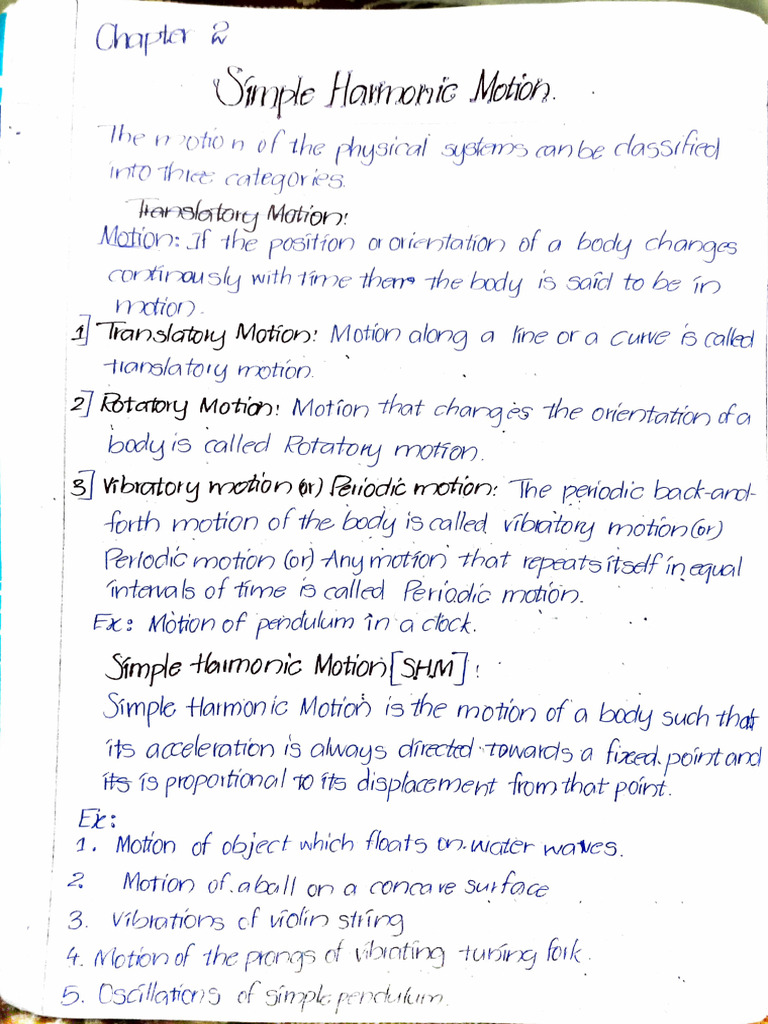 Chapter 2
Simple Harmonic Motion.
The motion of the physical systems can be classified
into three categories.
Translatory Motion:
Motion: If the position or orientation of a body changes
continously with time then the body is said to be in
motion.
1] Translatory Motion: Motion along a line or a curve is called
translatory motion.
2] Rotatory Motion: Motion that changes the orientation of a
body is called Rotatory motion.
3] Vibratory motion (or) Periodic motion: The periodic back-and-
forth motion of the body is called vibratory motion (or)
Periodic motion (or) Any motion that repeats itself in equal
intervals of time is called Periodic motion.
Ex: Motion of pendulum in a clock.
Simple Harmonic Motion [SHM]:
Simple Harmonic Motion is the motion of a body such that
its acceleration is always directed towards a fixed point and
its is proportional to its displacement from that point.
Ex:
1. Motion of object which floats on water waves.
2. Motion of a ball on a concave surface
3. Vibrations of violin string
4. Motion of the prongs of vibrating tuning fork.
5. Oscillations of simple pendulum.